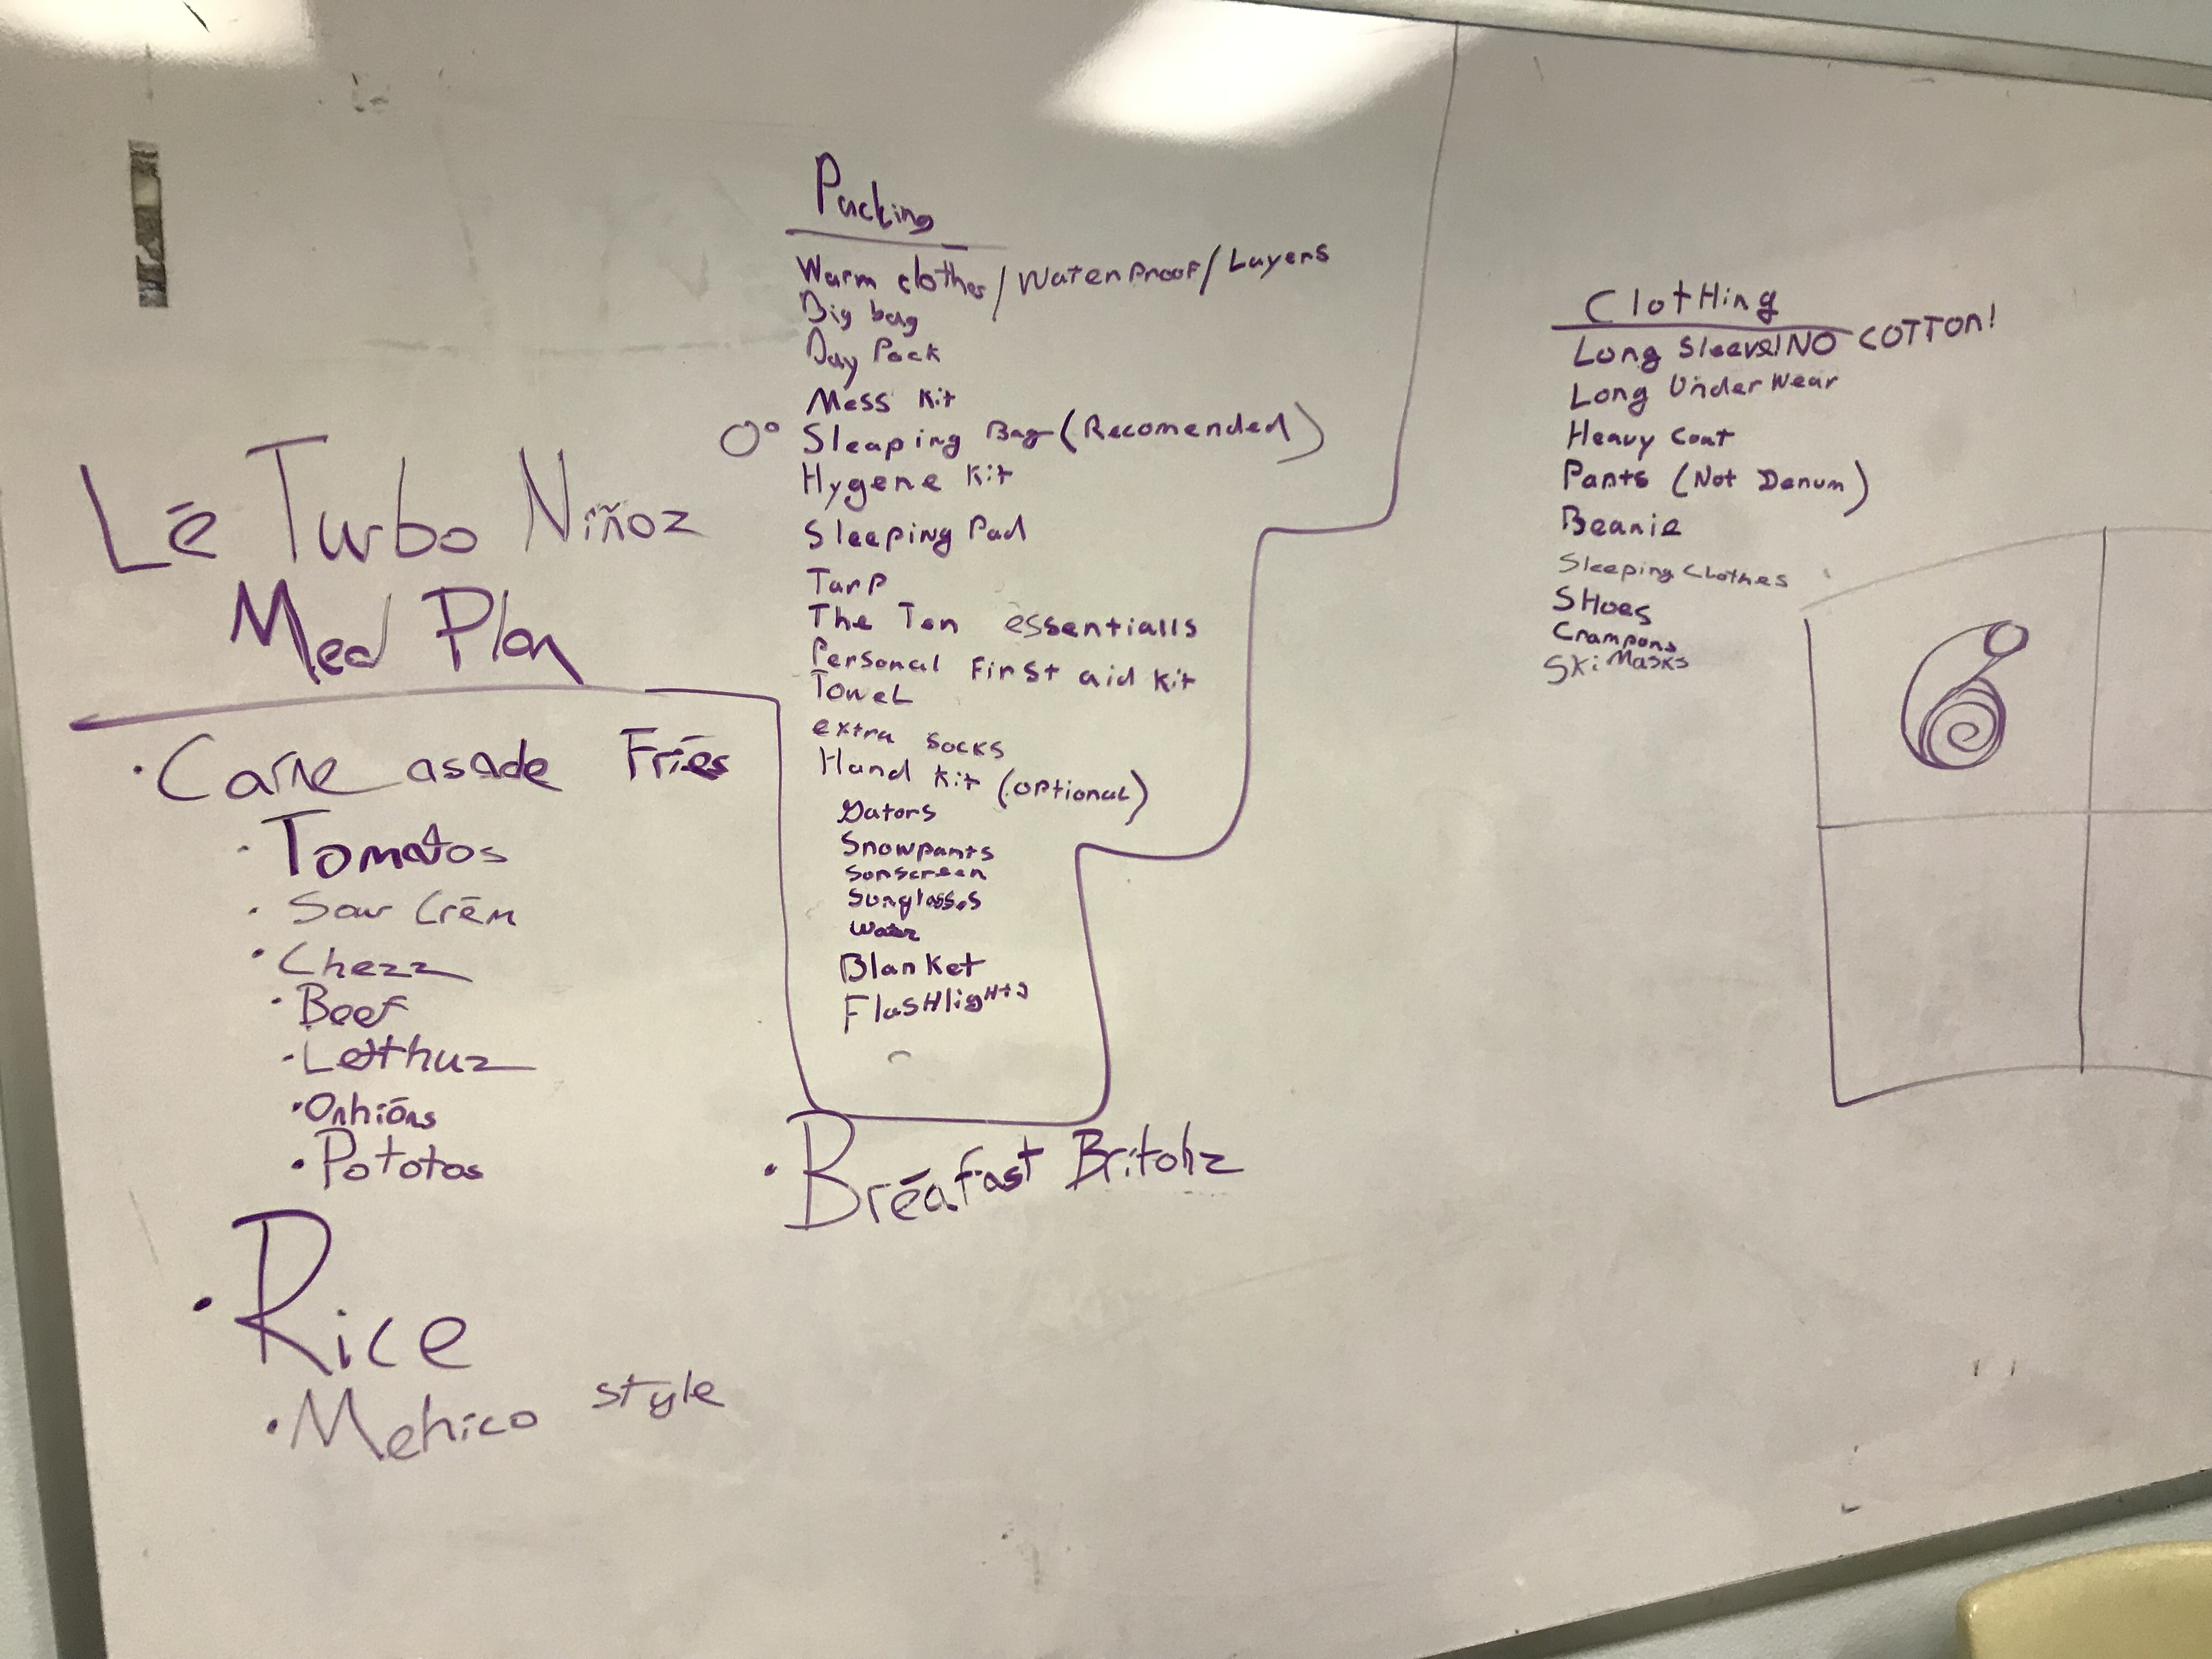 Lē Turbo Niñoz
Meal Plan
• Carne asade Friēs
• Tomatos
• Sour Crēm
• Chezz
• Beef
• Letthuz
• Onhiōns
• Pototos
• Rice
• Mehico style
Packing
Warm clothes/Waterproof/Layers
Big bag
Day Pack
Mess Kit
0° Sleaping Bag (Recomended)
Hygene Kit
Sleeping Pad
Tarp
The Ten essentialls
Personal First aid Kit
Towel
extra socks
Hand Kit (optional)
Gators
Snowpants
Sonscreen
Sunglasses
Water
Blanket
FlasHligHts
• Brēafast Britohz
ClotHing
Long Sleeve/NO COTTON!
Long UnderWear
Heavy Coat
Pants (Not Denum)
Beanie
Sleeping Clothes
SHoes
Crampons
Ski Masks